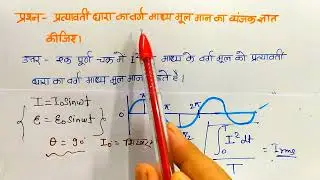 प्रश्न- प्रत्यावर्ती धारा का वर्ग माध्य मूल मान का व्यंजक ज्ञात
कीजिए।
उत्तर - एक पूर्ण चक्र में I² माध्य के वर्ग मूल को प्रत्यावर्ती
धारा का वर्ग माध्य मूल मान कहते है।
I = I₀sinωt
ε = ε₀sinωt
θ = 90°
I₀ =
π
2π
π/2
∫₀ᵀ I²dt / T = Irms